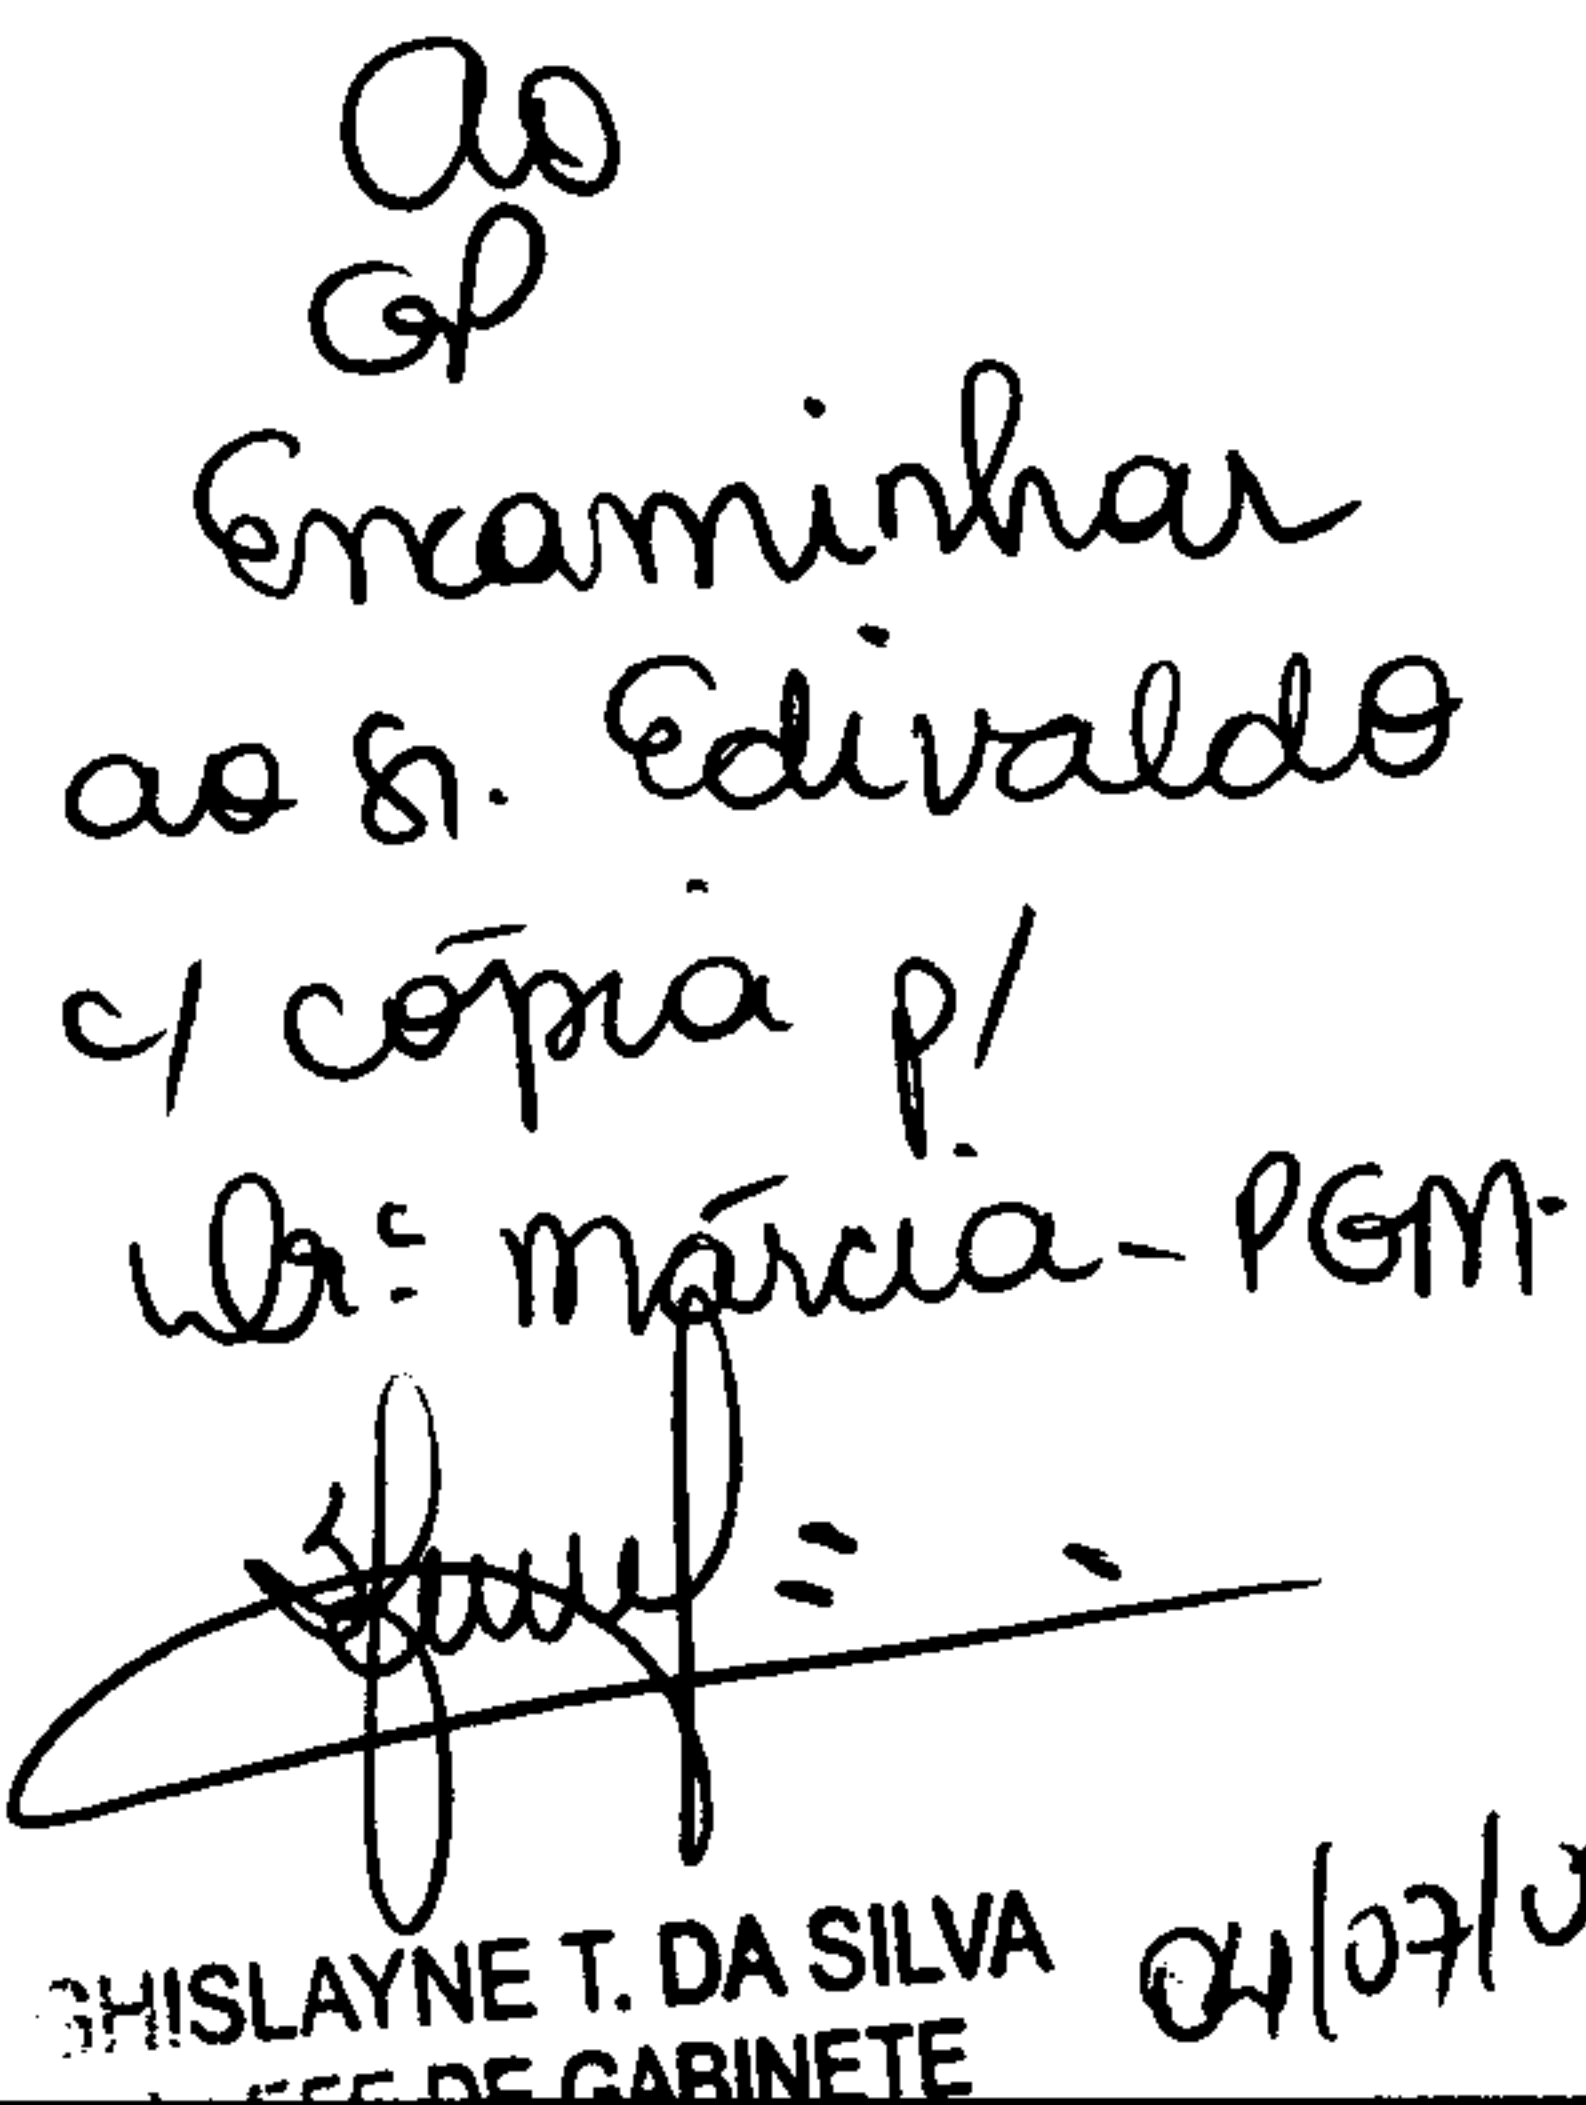 Ao
GP
Encaminhar
ao Sr. Edivaldo
c/ cópia p/
Drª Márcia - PGM.
GHISLAYNE T. DA SILVA
04/07/0
DE GABINETE